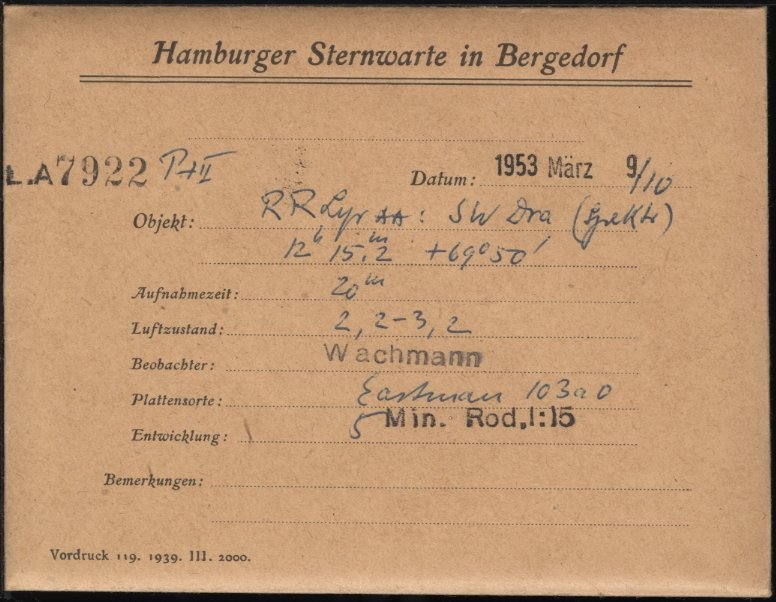 Hamburger Sternwarte in Bergedorf
L.A 7922 P+II
Datum: 1953 März 9/10
Objekt: RR Lyr **: SW Dra (Spektr)
12h 15.m2 +69°50'
Aufnahmezeit: 20m
Luftzustand: 2, 2-3, 2
Beobachter: Wachmann
Plattensorte: Eastman 103a0
Entwicklung: 5 Min. Rod. 1:15
Bemerkungen:
Vordruck 119. 1939. III. 2000.